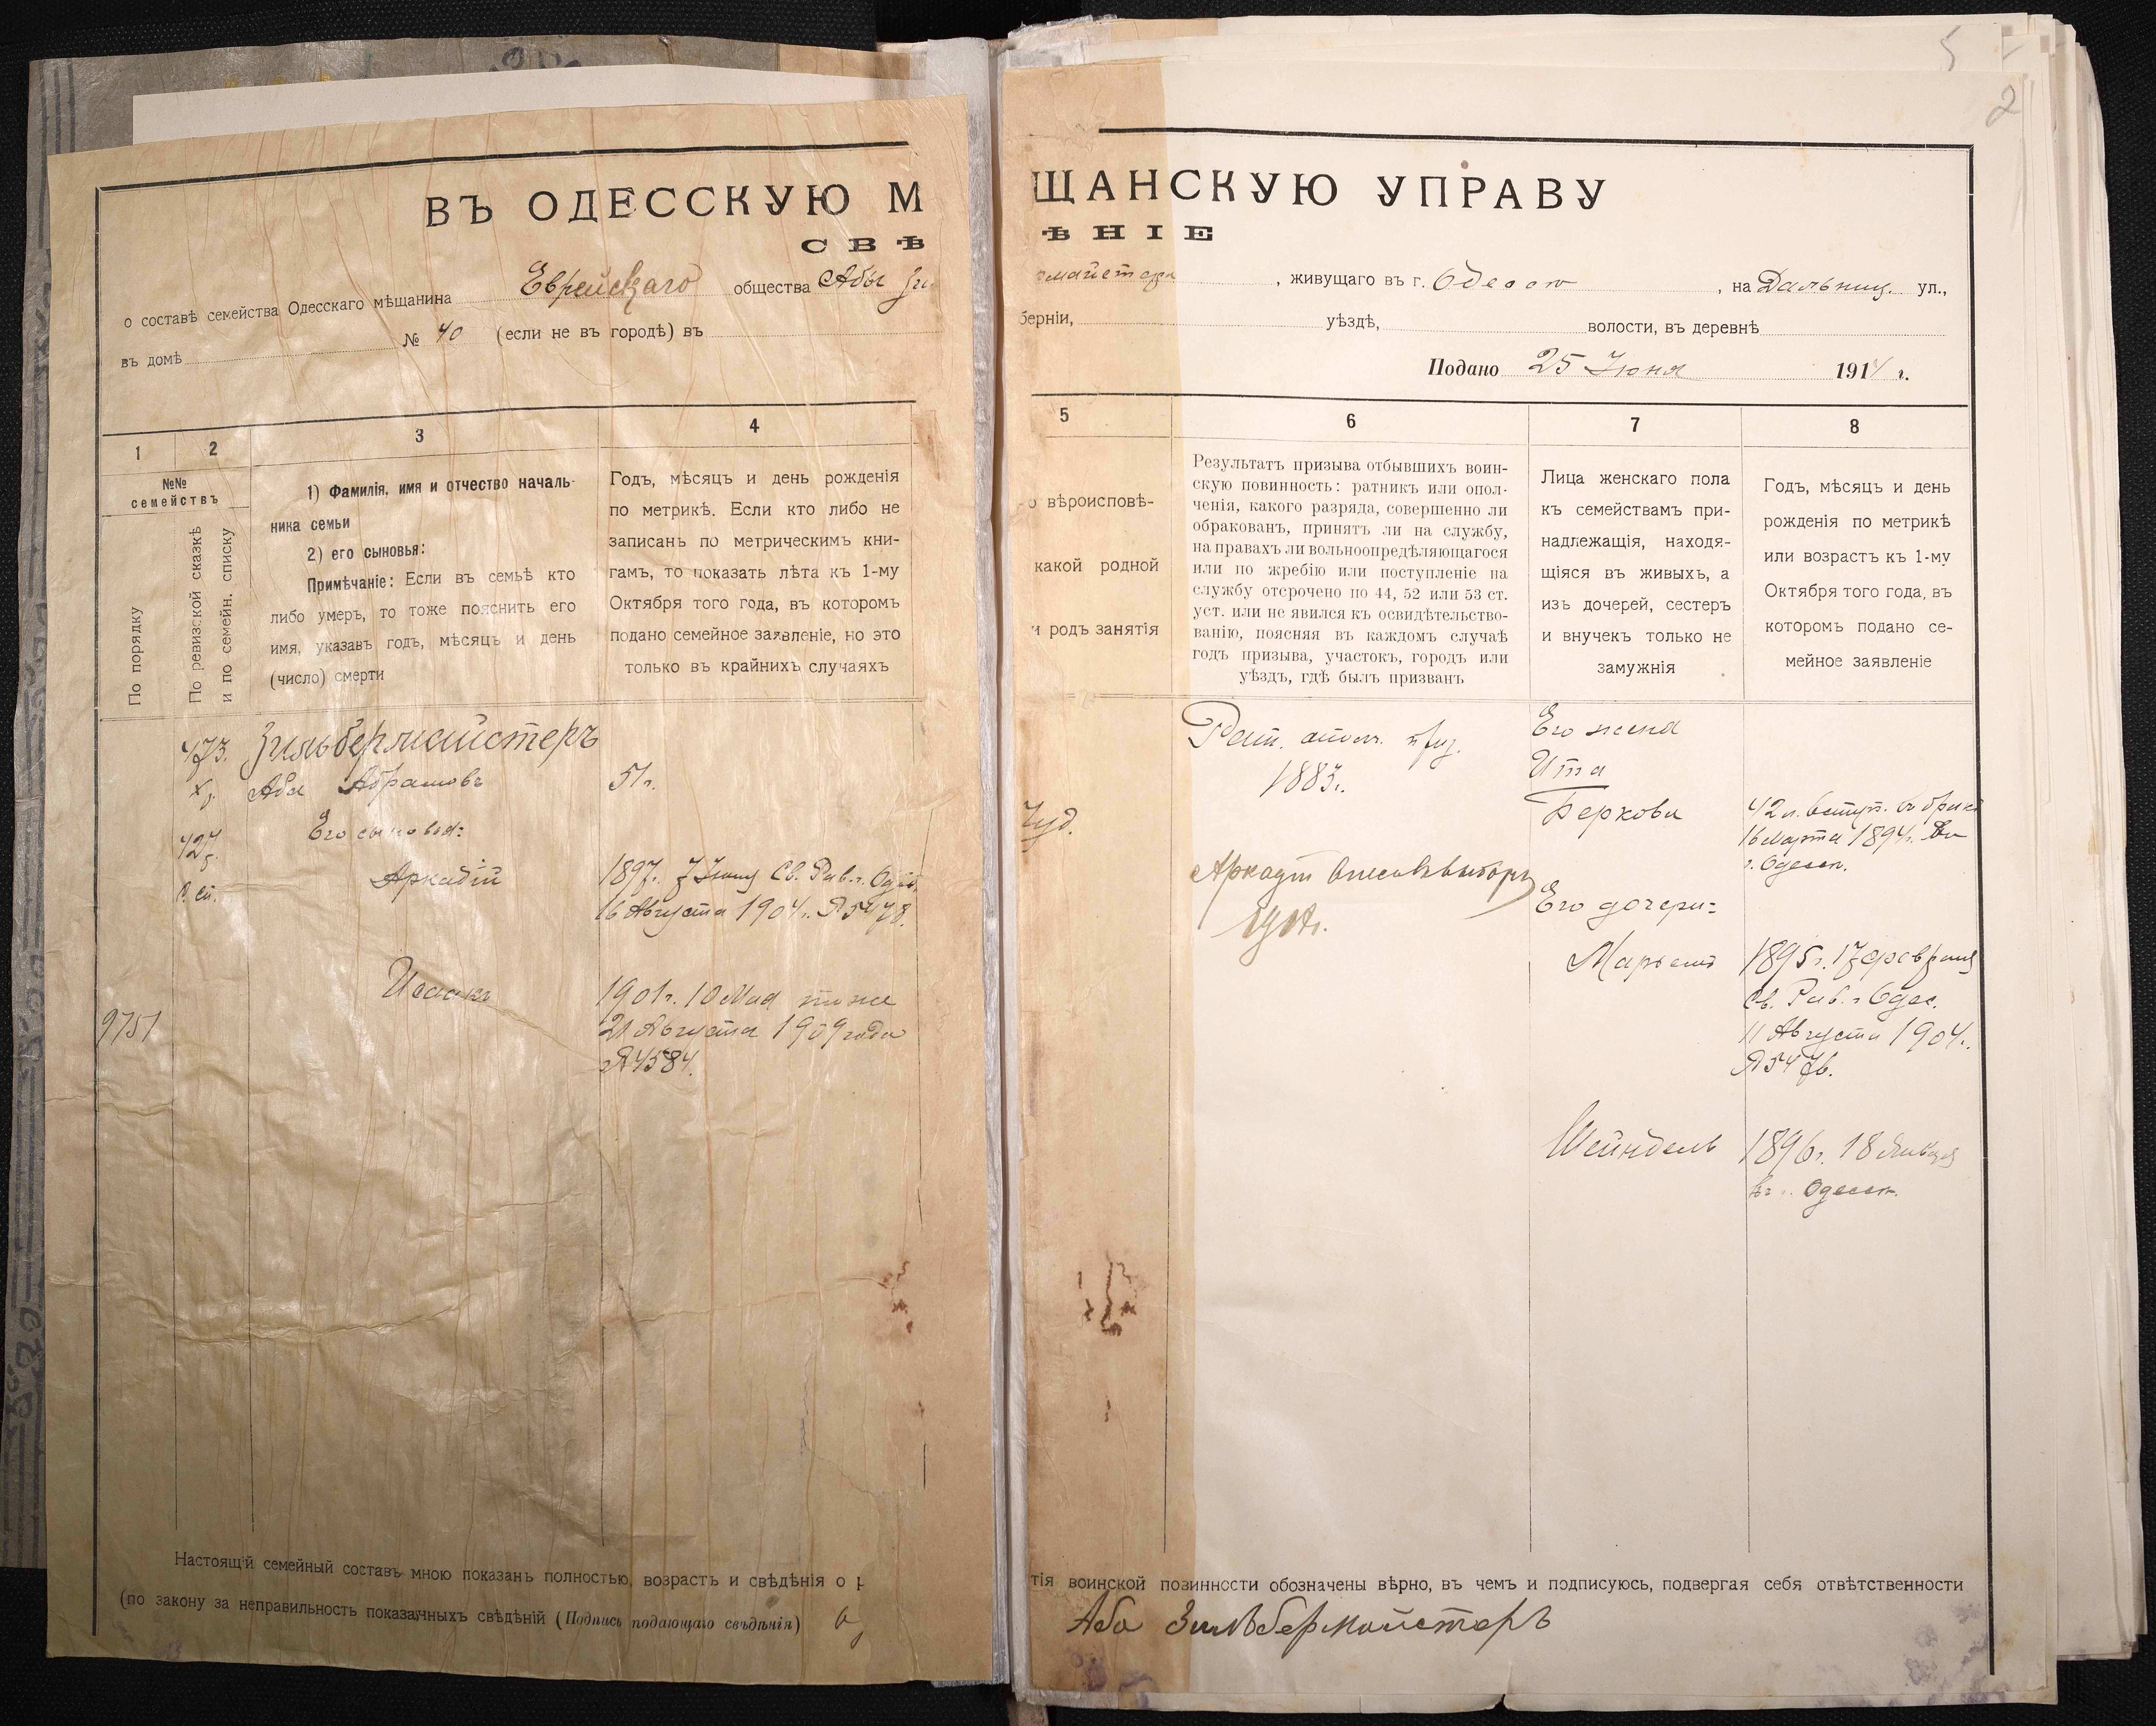 5
2
ВЪ ОДЕССКУЮ М
ЩАНСКУЮ УПРАВУ
СВѢ
ѢНІЕ
о составѣ семейства Одесскаго мѣщанина Еврейскаго общества Абы Зи
майстера, живущаго въ г. Одессѣ, на Дальниц. ул.,
въ домѣ № 40 (если не въ городѣ) въ
берніи, уѣздѣ, волости, въ деревнѣ
Подано 25 Июня 1914 г.
1
2
3
4
5
6
7
8
№№
семействъ
По порядку
По ревизской сказкѣ
и по семейн. списку
1) Фамилія, имя и отчество началь-
ника семьи
2) его сыновья:
Примѣчаніе: Если въ семьѣ кто
либо умеръ, то тоже пояснить его
имя, указавъ годъ, мѣсяцъ и день
(число) смерти
Годъ, мѣсяцъ и день рожденія
по метрикѣ. Если кто либо не
записанъ по метрическимъ кни-
гамъ, то показать лѣта къ 1-му
Октября того года, въ которомъ
подано семейное заявленіе, но это
только въ крайнихъ случаяхъ
о вѣроисповѣ-
какой родной
и родъ занятія
Результатъ призыва отбывшихъ воин-
скую повинность: ратникъ или опол-
ченія, какого разряда, совершенно ли
обракованъ, принятъ ли на службу,
на правахъ ли вольноопредѣляющагося
или по жребію или поступленіе на
службу отсрочено по 44, 52 или 53 ст.
уст. или не явился къ освидѣтельство-
ванію, поясняя въ каждомъ случаѣ
годъ призыва, участокъ, городъ или
уѣздъ, гдѣ былъ призванъ
Лица женскаго пола
къ семействамъ при-
надлежащія, находя-
щіяся въ живыхъ, а
изъ дочерей, сестеръ
и внучекъ только не
замужнія
Годъ, мѣсяцъ и день
рожденія по метрикѣ
или возрастъ къ 1-му
Октября того года, въ
которомъ подано се-
мейное заявленіе
473. Зильбермайстеръ
Аба Абрамовъ
51 г.
427
Его сыновья:
Аркадій
1897 г. 7 Св. Рав. г. Одес.
16 Августа 1904 г. № 5478.
Исаакъ
1901 г. 10 Мая тоже
21 Августа 1909 года
№ 4584.
9751
Іуд.
Рат. ополч.
1883 г.
Аркадій
Его жена
Ита
Беркова
42 л. вступ. въ бракъ
16 Марта 1894 г. въ
г. Одессѣ.
Его дочери:
Марьемъ
1895 г. 17 Февраля
Св. Рав. г. Одес.
11 Августа 1904 г.
№ 5476.
Шейндель
1896 г. 18 Января
въ г. Одессѣ.
Настоящій семейный составъ мною показанъ полностью, возрастъ и свѣдѣнія о
тія воинской повинности обозначены вѣрно, въ чемъ и подписуюсь, подвергая себя отвѣтственности
(по закону за неправильность показанныхъ свѣдѣній (Подпись подающаго свѣдѣнія)
Аба Зильбермайстеръ